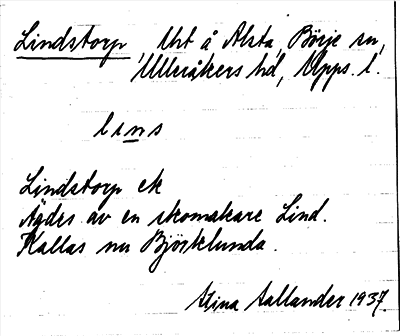 Lindstorp Utt å Alsta, Börje sn,
Ulleråkers hd, Upps. l.
lıns
Lindstorp ek
Ägdes av en skomakare Lind.
Kallas nu Björklunda.
Stina Sallander 1937.